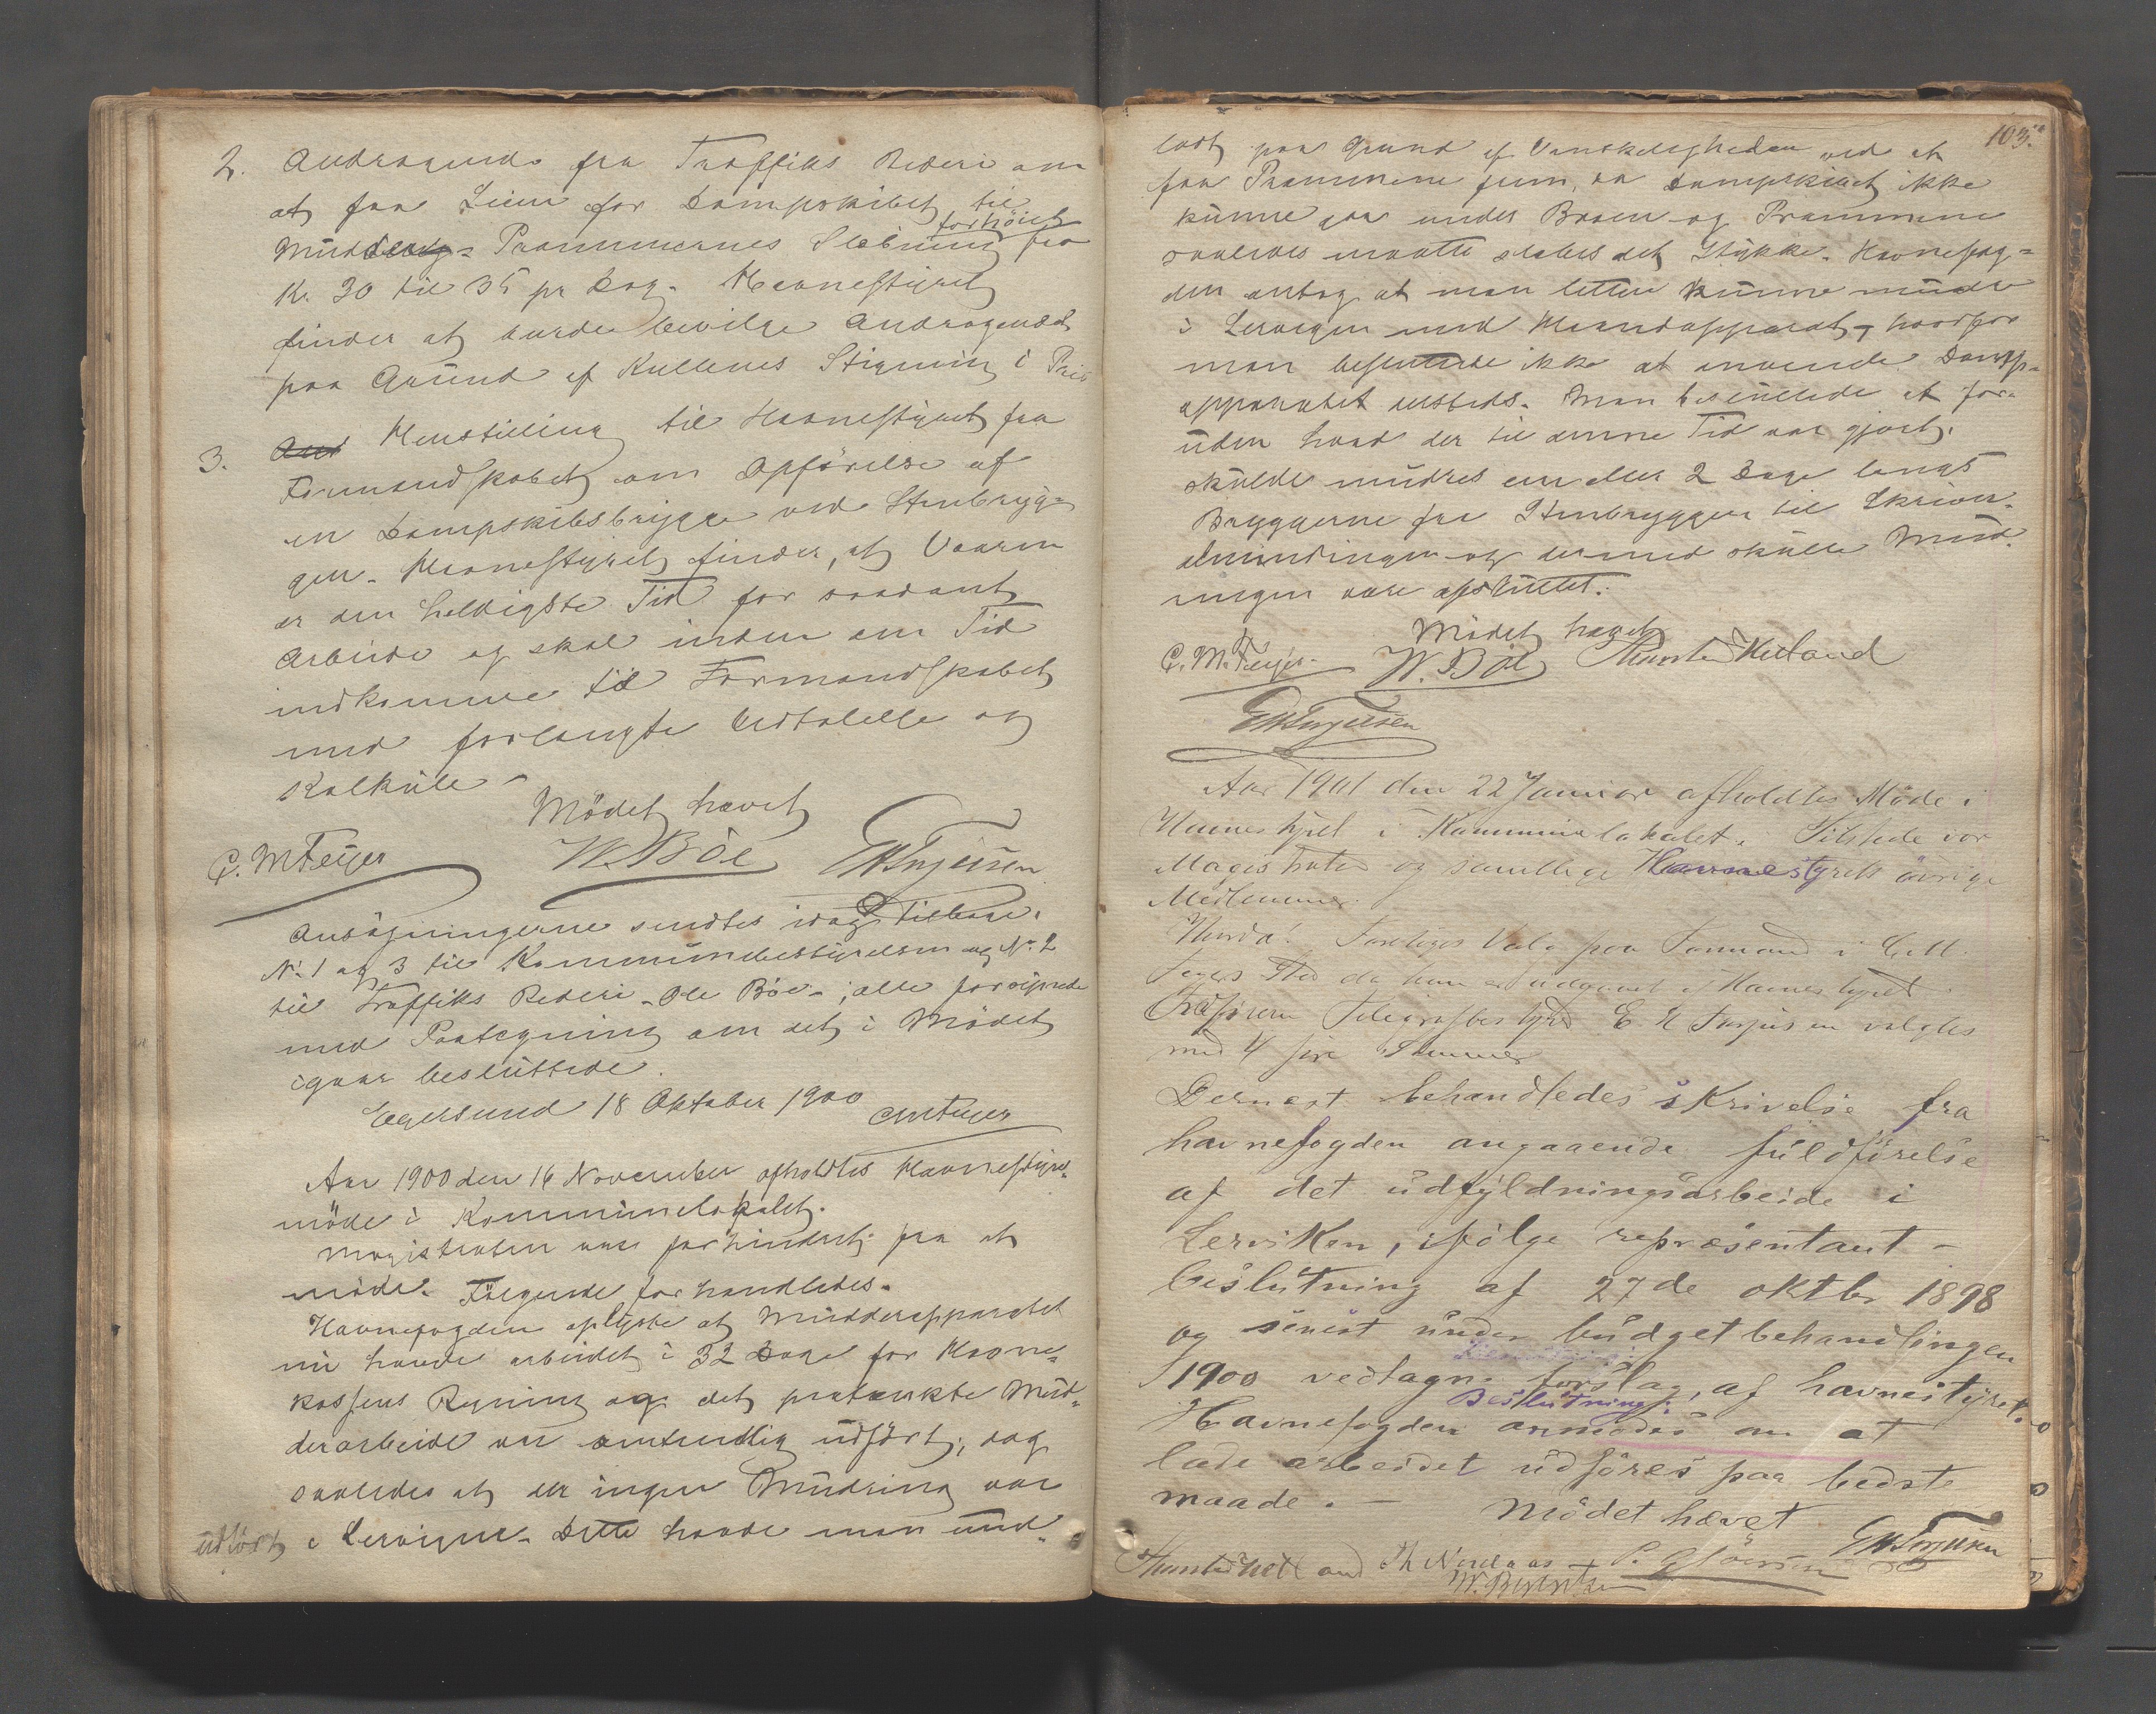 2. Andragende fra Traffiks Rederi om
at faa Leien for Dampskibet til
Mudder- Prammernes Slæbning forhöiet fra
Kr. 30 til 35 pr Dag. Havnestyret
finder at burde bevilge Andragendet
paa Grund af Kullenes Stigning i Pris
3. Henstilling til Havnestyret fra
Formandskabet om Opförelse af
en Dampskibsbrygge ved Stenbryg-
gen. Havnestyret finder, at Vaaren
er den heldigste Tid for saadant
Arbeide og skal inden den Tid
indkomme til Formandskabet
med forlangte Udtalelse og
Kalkule
Mödet hævet
C. M Feyer W. Böe EHTorjussen
Ansögningerne sendtes idag tilbage.
No. 1 og 3 til Kommunebestyrelsen og No. 2
til Traffiks Rederi - Ole Böe -; alle forsynede
med Paategning om det i Mödet
igaar besluttede.
Egersund 18 Oktober 1900 CMFeyer
Aar 1900 den 16 November afholdtes Havnestyre-
möde i Kommunelokalet.
Magistraten var forhindret fra at
möde. Fölgende forhandledes.
Havnefogden oplyste at Mudderapparatet
nu havde arbeidet i 32 Dage for Havne-
kassens Regning og det paatænkte Mud-
derarbeide var omtrentlig udfört; dog
saaledes at der ingen Mudring var
udfört i Lervigen. Dette havde man und-
103.
ladt paa Grund af Vanskeligheden ved at
faa Prammene frem, da Dampskibet ikke
kunne gaa under Broen og Prammene
saaledes maatte slæbes det Stykke. Havnefog-
den antog at man lettere kunne mudre
i Lervigen med Haandapparat, hvorfor
man besluttede ikke at anvende Damp-
apparatet dersteds. Man besluttede at for-
uden hvad der til denne Tid var gjort,
skulde mudres en eller 2 Dage langs
Bryggerne fra Stenbryggen til Skriver-
almindingen og dermed skulle Mud-
ringen være afsluttet.
Mödet hævet
C. M. Feyer. W. Böe Thorsten Hetland
EHTorjussen
Aar 1901 den 22 Januar afholdtes Möde i
Havnestyret i Kommunelokalet. Tilstede var
Magistraten og samtlige Havnestyrets övrige
Medlemmer.
Foretoges Valg paa Formand i C. M.
Feyers Sted da han er udgaaet af Havnestyret.
Telegrafbestyrer E H Torjussen valgtes
med 4 fire Stemmer
Dernæst behandledes skrivelse fra
havnefogden angaaende fuldförelse
af det udfyldningsarbeide i
Lerviken, ifölge repræsentant-
beslutning af 27de oktbr 1898
og senest under budgetbehandlingen
1900 vedtagne forslag, af havnestyret.
Beslutning:
Havnefogden anmodes om at
lade arbeidet udföres paa bedste
maade. -
Mödet hævet
EHTorjussen
Thorsten Hetland Th Nordaas